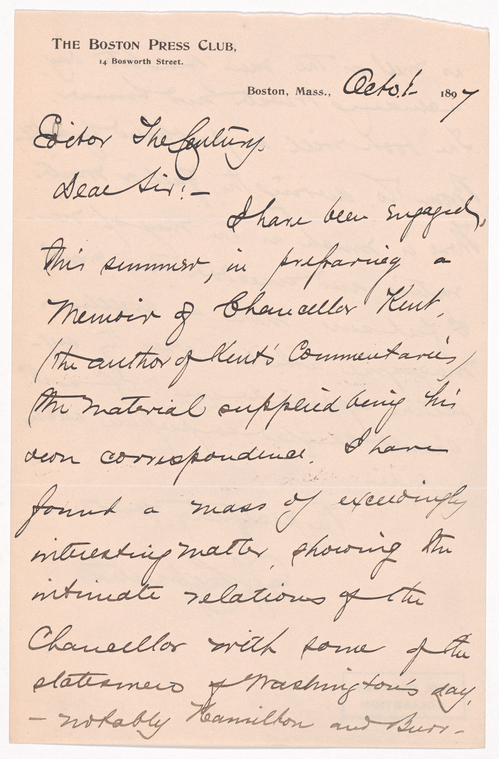 THE BOSTON PRESS CLUB,
14 Bosworth Street.
Boston, Mass., Oct. 1 1897
Editor The Century.
Dear Sir:—
I have been engaged,
this summer, in preparing a
Memoir of Chancellor Kent,
(the author of Kent's Commentaries)
the material supplied being his
own correspondence. I have
found a mass of exceedingly
interesting matter, showing the
intimate relations of the
Chancellor with some of the
statesmen of Washington's day,
— notably Hamilton and Burr —